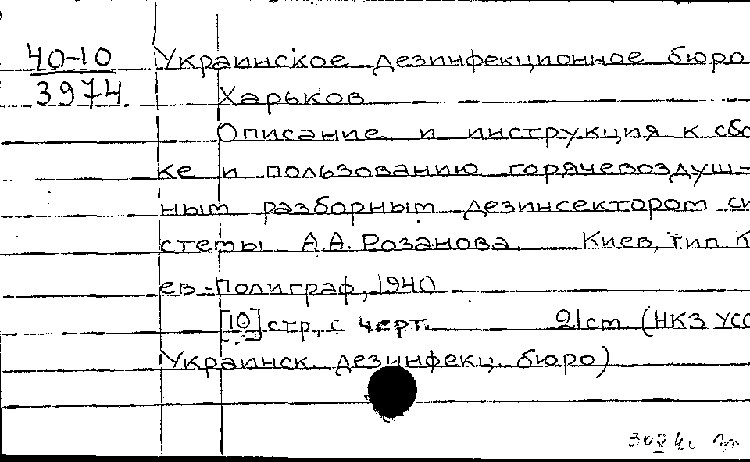 40-10
3974
Украинское дезинфекционное бюро
Харьков
Описание и инструкция к сбо
ке и пользованию горячевоздуш-
ным разборным дезинсектором си
стемы А.А. Розанова Киев, тип. К
ев-Полиграф, 1940
[10] стр., с черт. 21 cm (НКЗ УСС
Украинск. дезинфекц. бюро)